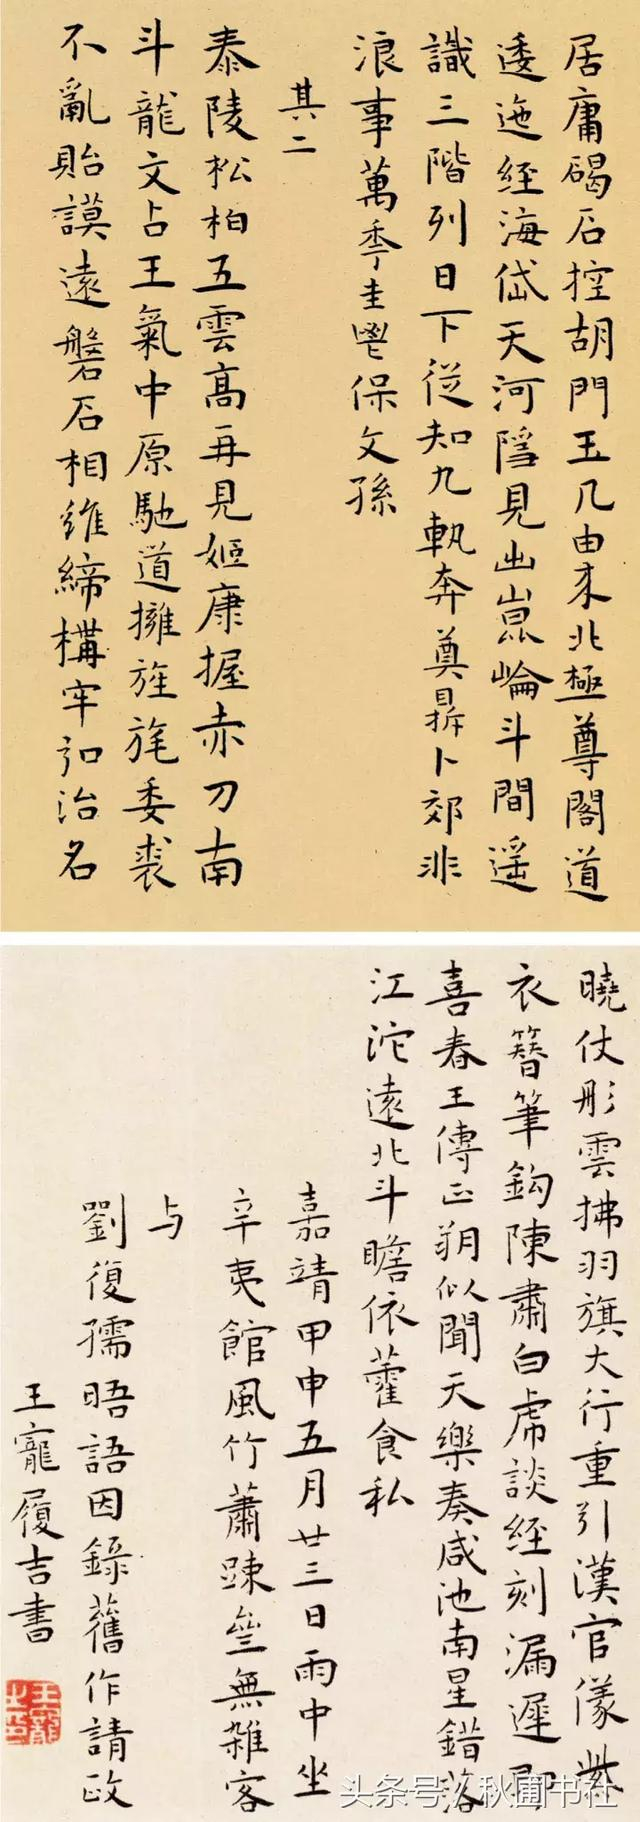 居庸碣石控胡門玉几由來北極尊閣道
逶迤經海岱天河隱見出崑崙斗間遥
識三階列日下從知九軌奔奠鼎卜郊非
浪事萬年圭鬯保文孫
其二
泰陵松柏五雲高再見姬康握赤刀南
斗龍文占王氣中原馳道擁旌旄委裘
不亂貽謨遠磐石相維締構牢弘治名
曉仗彤雲拂羽旗大行重引漢官儀紫
衣簪筆鈎陳肅白虎談經刻漏遲即
喜春王傳正朔似聞天樂奏咸池南星錯落
江沱遠北斗瞻依藿食私
嘉靖甲申五月廿三日雨中坐
辛夷館風竹蕭踈並無雜客
与
劉復孺晤語因錄舊作請政
王寵履吉書
头条号/秋圃书社